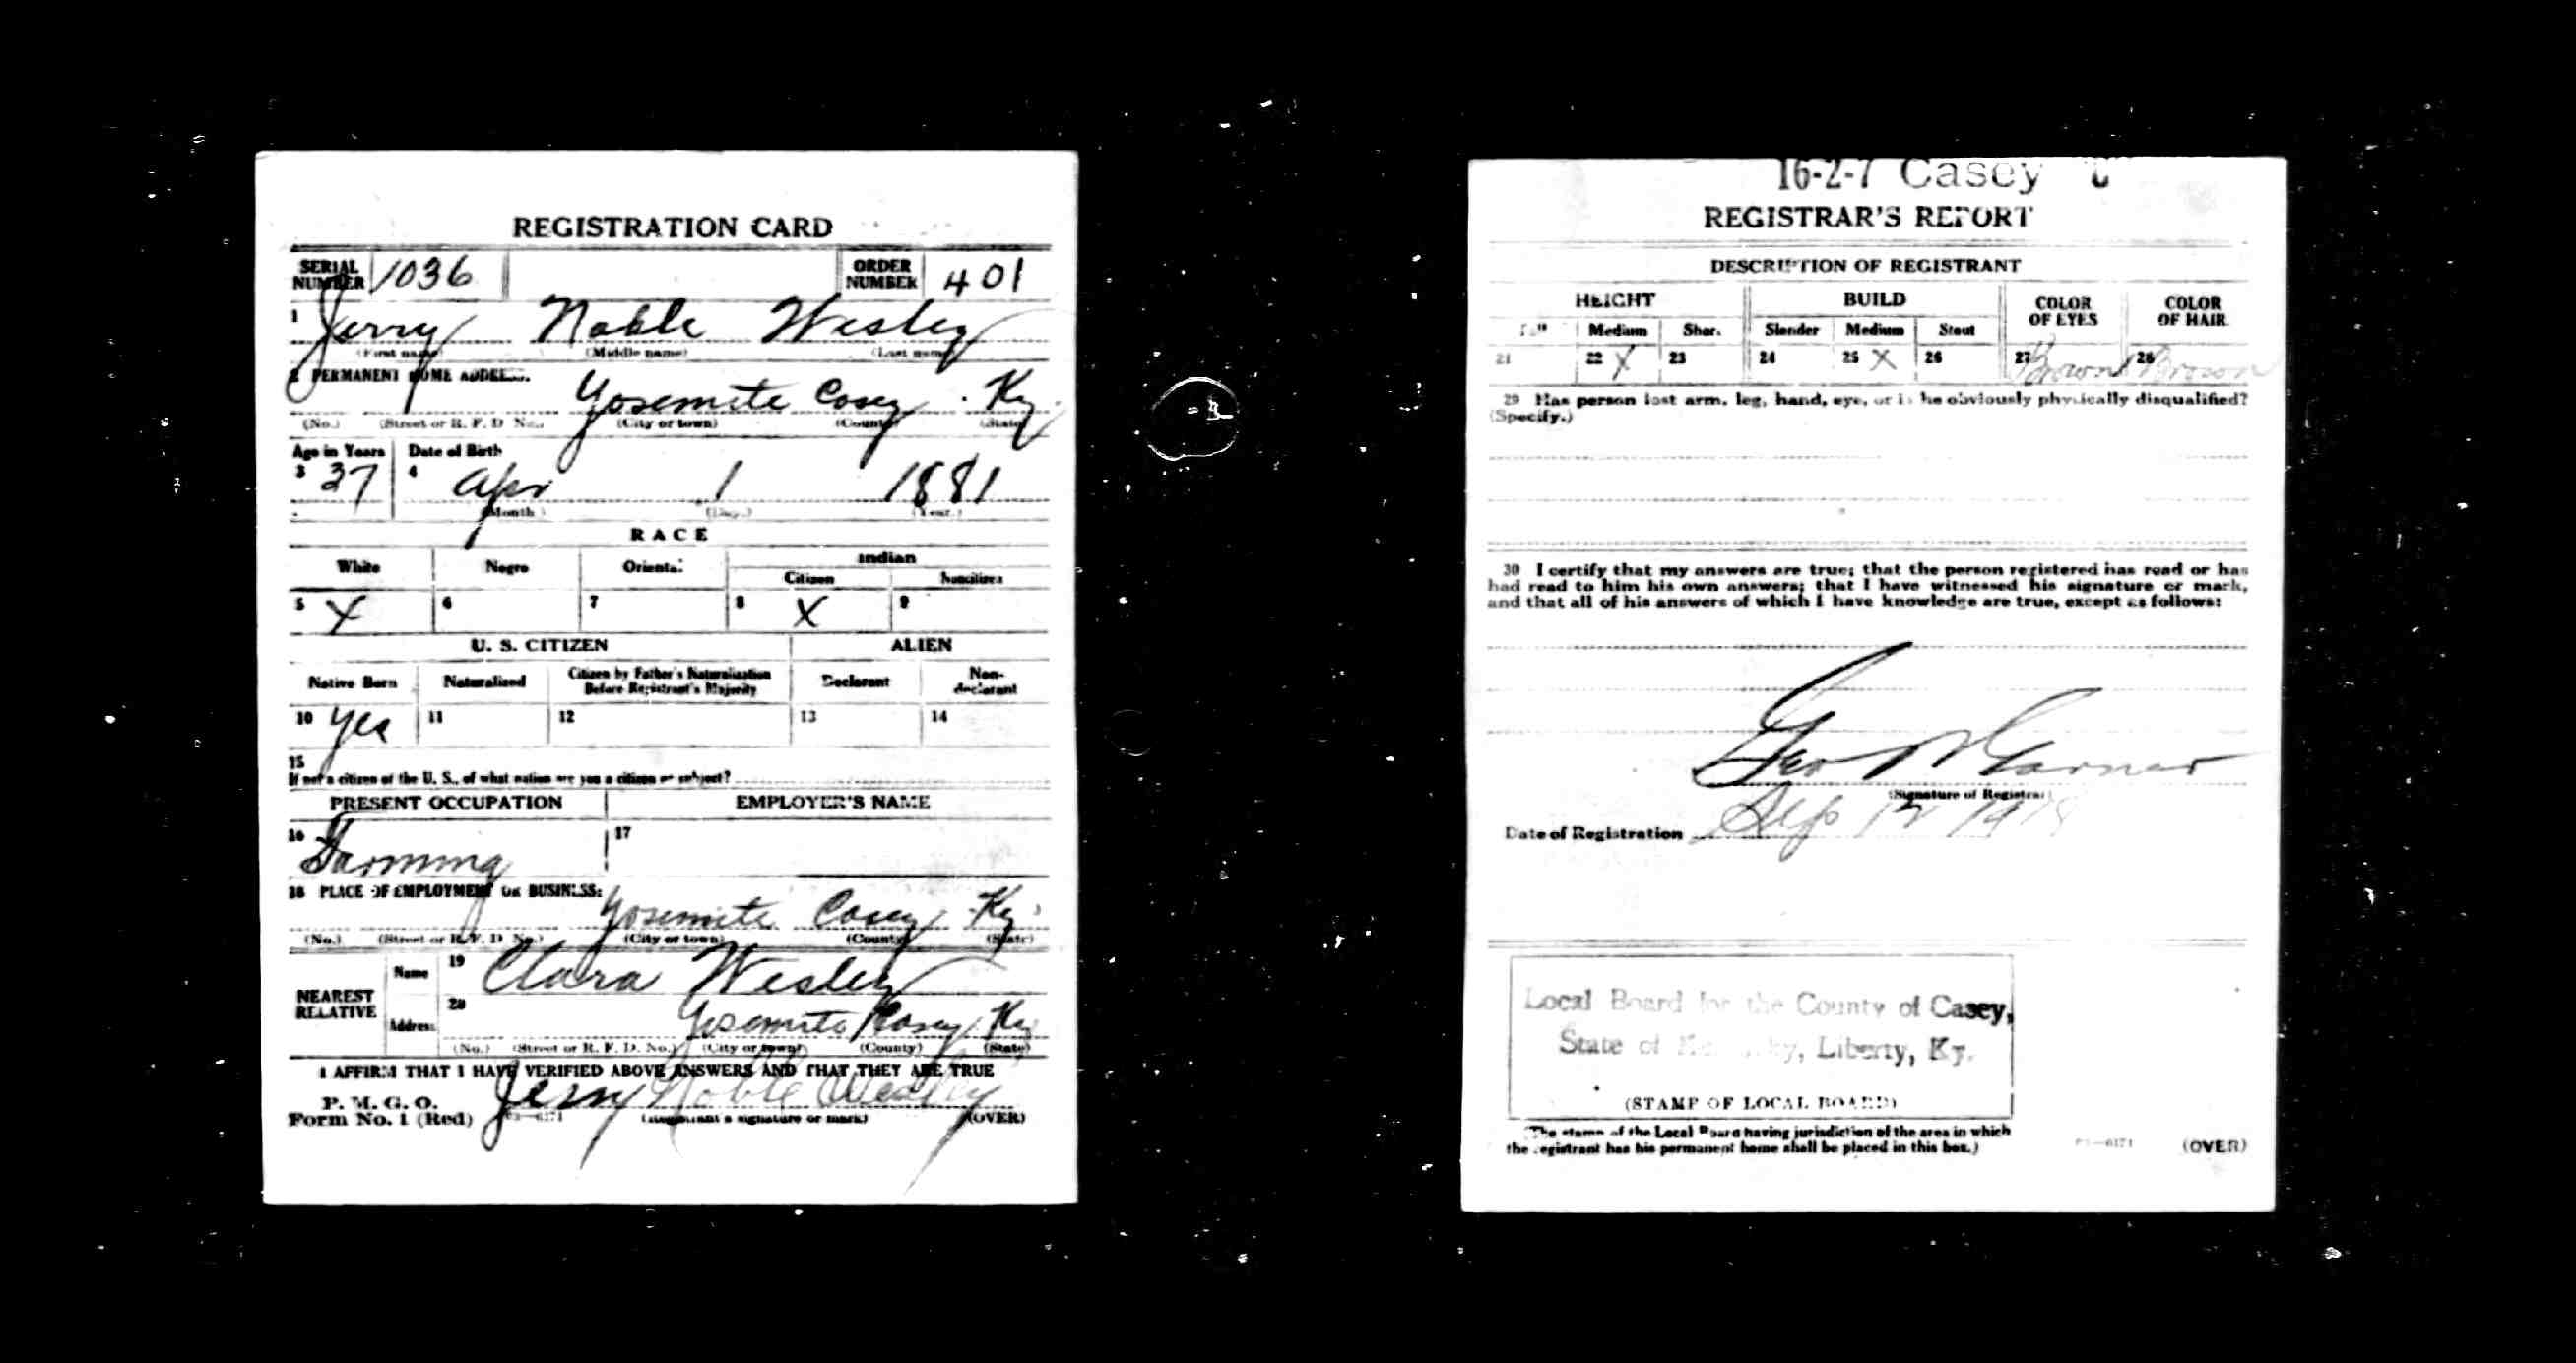 REGISTRATION CARD
SERIAL NUMBER 1036 ORDER NUMBER 401
1 Jerry Noble Wesley
(First name) (Middle name) (Last name)
2 PERMANENT HOME ADDRESS:
Yosemite Casey Ky.
(No.) (Street or R. F. D. No.) (City or town) (County) (State)
Age in Years Date of Birth
3 37 4 Apr 1 1881
(Month.) (Day.) (Year.)
RACE
White Negro Oriental Indian
Citizen Noncitizen
5 X 6 7 8 X 9
U. S. CITIZEN ALIEN
Native Born Naturalized Citizen by Father's Naturalization Before Registrant's Majority Declarant Non-declarant
10 Yes 11 12 13 14
15
If not a citizen of the U. S., of what nation are you a citizen or subject?
PRESENT OCCUPATION EMPLOYER'S NAME
16 Farming 17
18 PLACE OF EMPLOYMENT OR BUSINESS:
Yosemite Casey Ky.
(No.) (Street or R. F. D. No.) (City or town) (County) (State)
NEAREST RELATIVE
Name 19 Clara Wesley
Address 20 Yosemite Casey Ky
(No.) (Street or R. F. D. No.) (City or town) (County) (State)
I AFFIRM THAT I HAVE VERIFIED ABOVE ANSWERS AND THAT THEY ARE TRUE
P. M. G. O.
Form No. 1 (Red) Jerry Noble Wesley
03—6171 (Registrant's signature or mark) (OVER)
16-2-7 Casey C
REGISTRAR'S REPORT
DESCRIPTION OF REGISTRANT
HEIGHT BUILD COLOR OF EYES COLOR OF HAIR
Tall Medium Short Slender Medium Stout
21 22 X 23 24 25 X 26 27 Brown 28 Brown
29 Has person lost arm, leg, hand, eye, or is he obviously physically disqualified?
(Specify.)
30 I certify that my answers are true; that the person registered has read or has
had read to him his own answers; that I have witnessed his signature or mark,
and that all of his answers of which I have knowledge are true, except as follows:
Geo Garner
(Signature of Registrar)
Date of Registration Sep 12 1918
Local Board for the County of Casey,
State of Kentucky, Liberty, Ky.
(STAMP OF LOCAL BOARD)
(The stamp of the Local Board having jurisdiction of the area in which
the registrant has his permanent home shall be placed in this box.)
03—6171 (OVER)